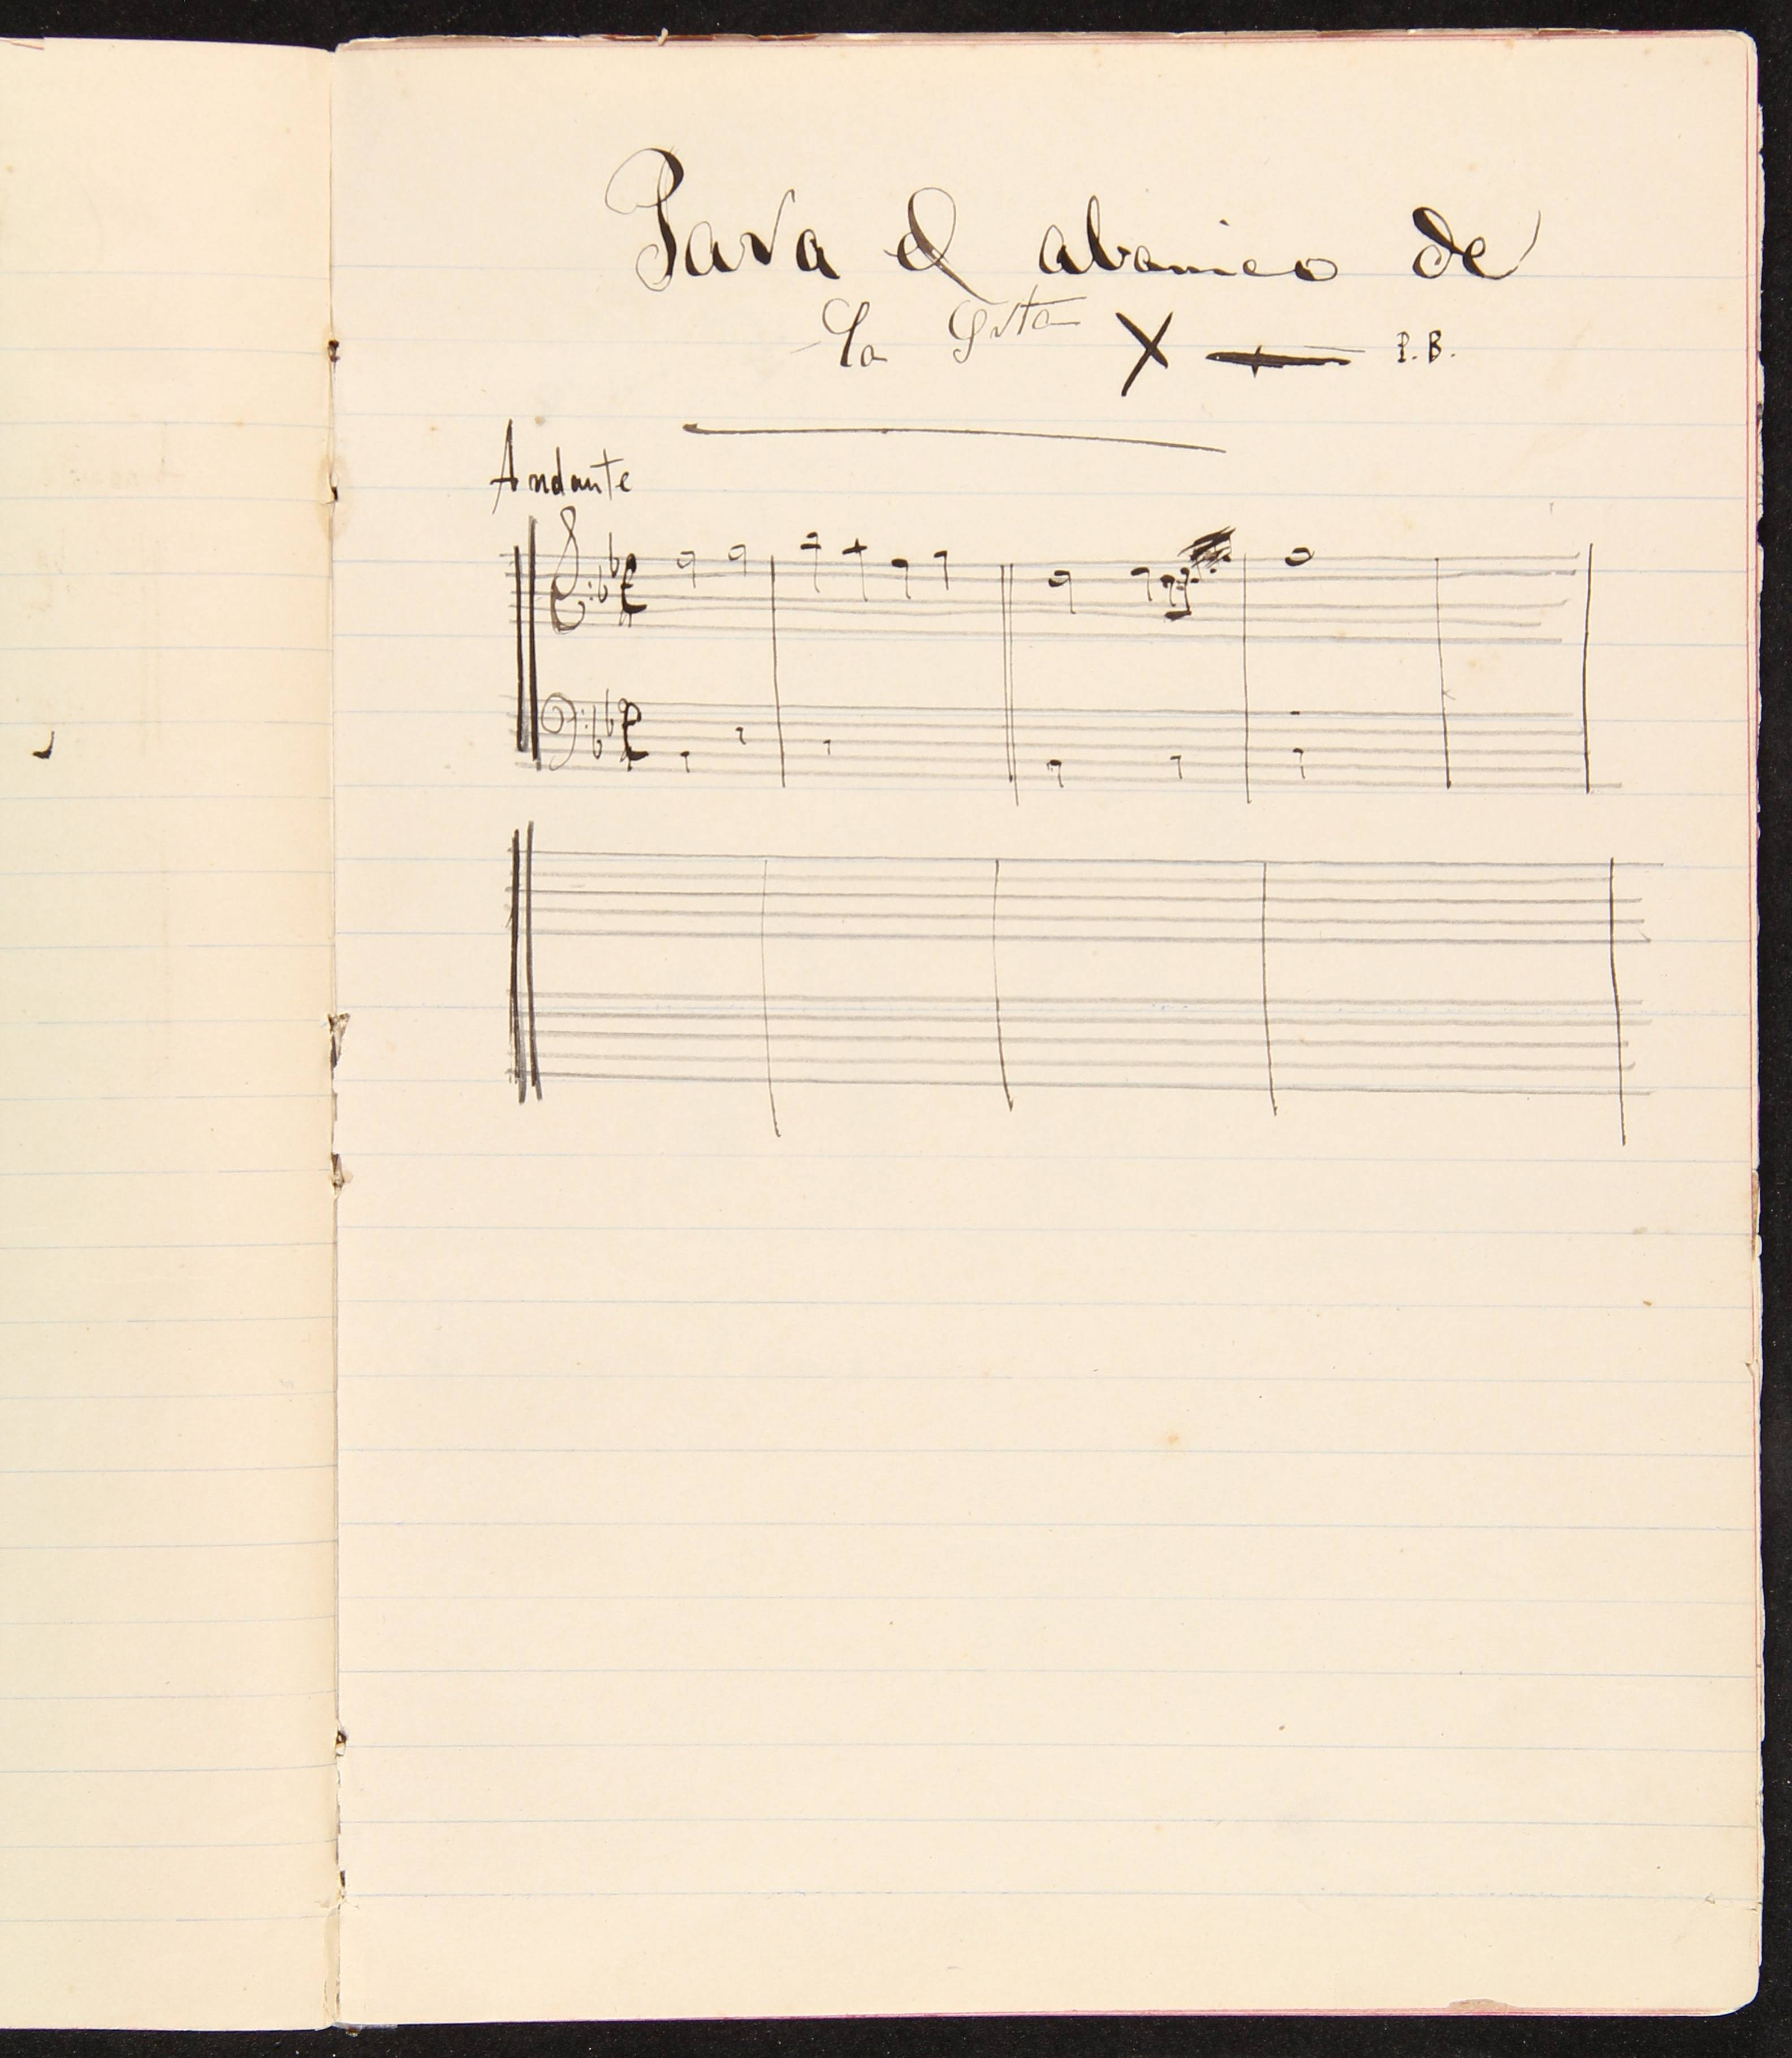 Para el abanico de
la Srta X P. B.
Andante